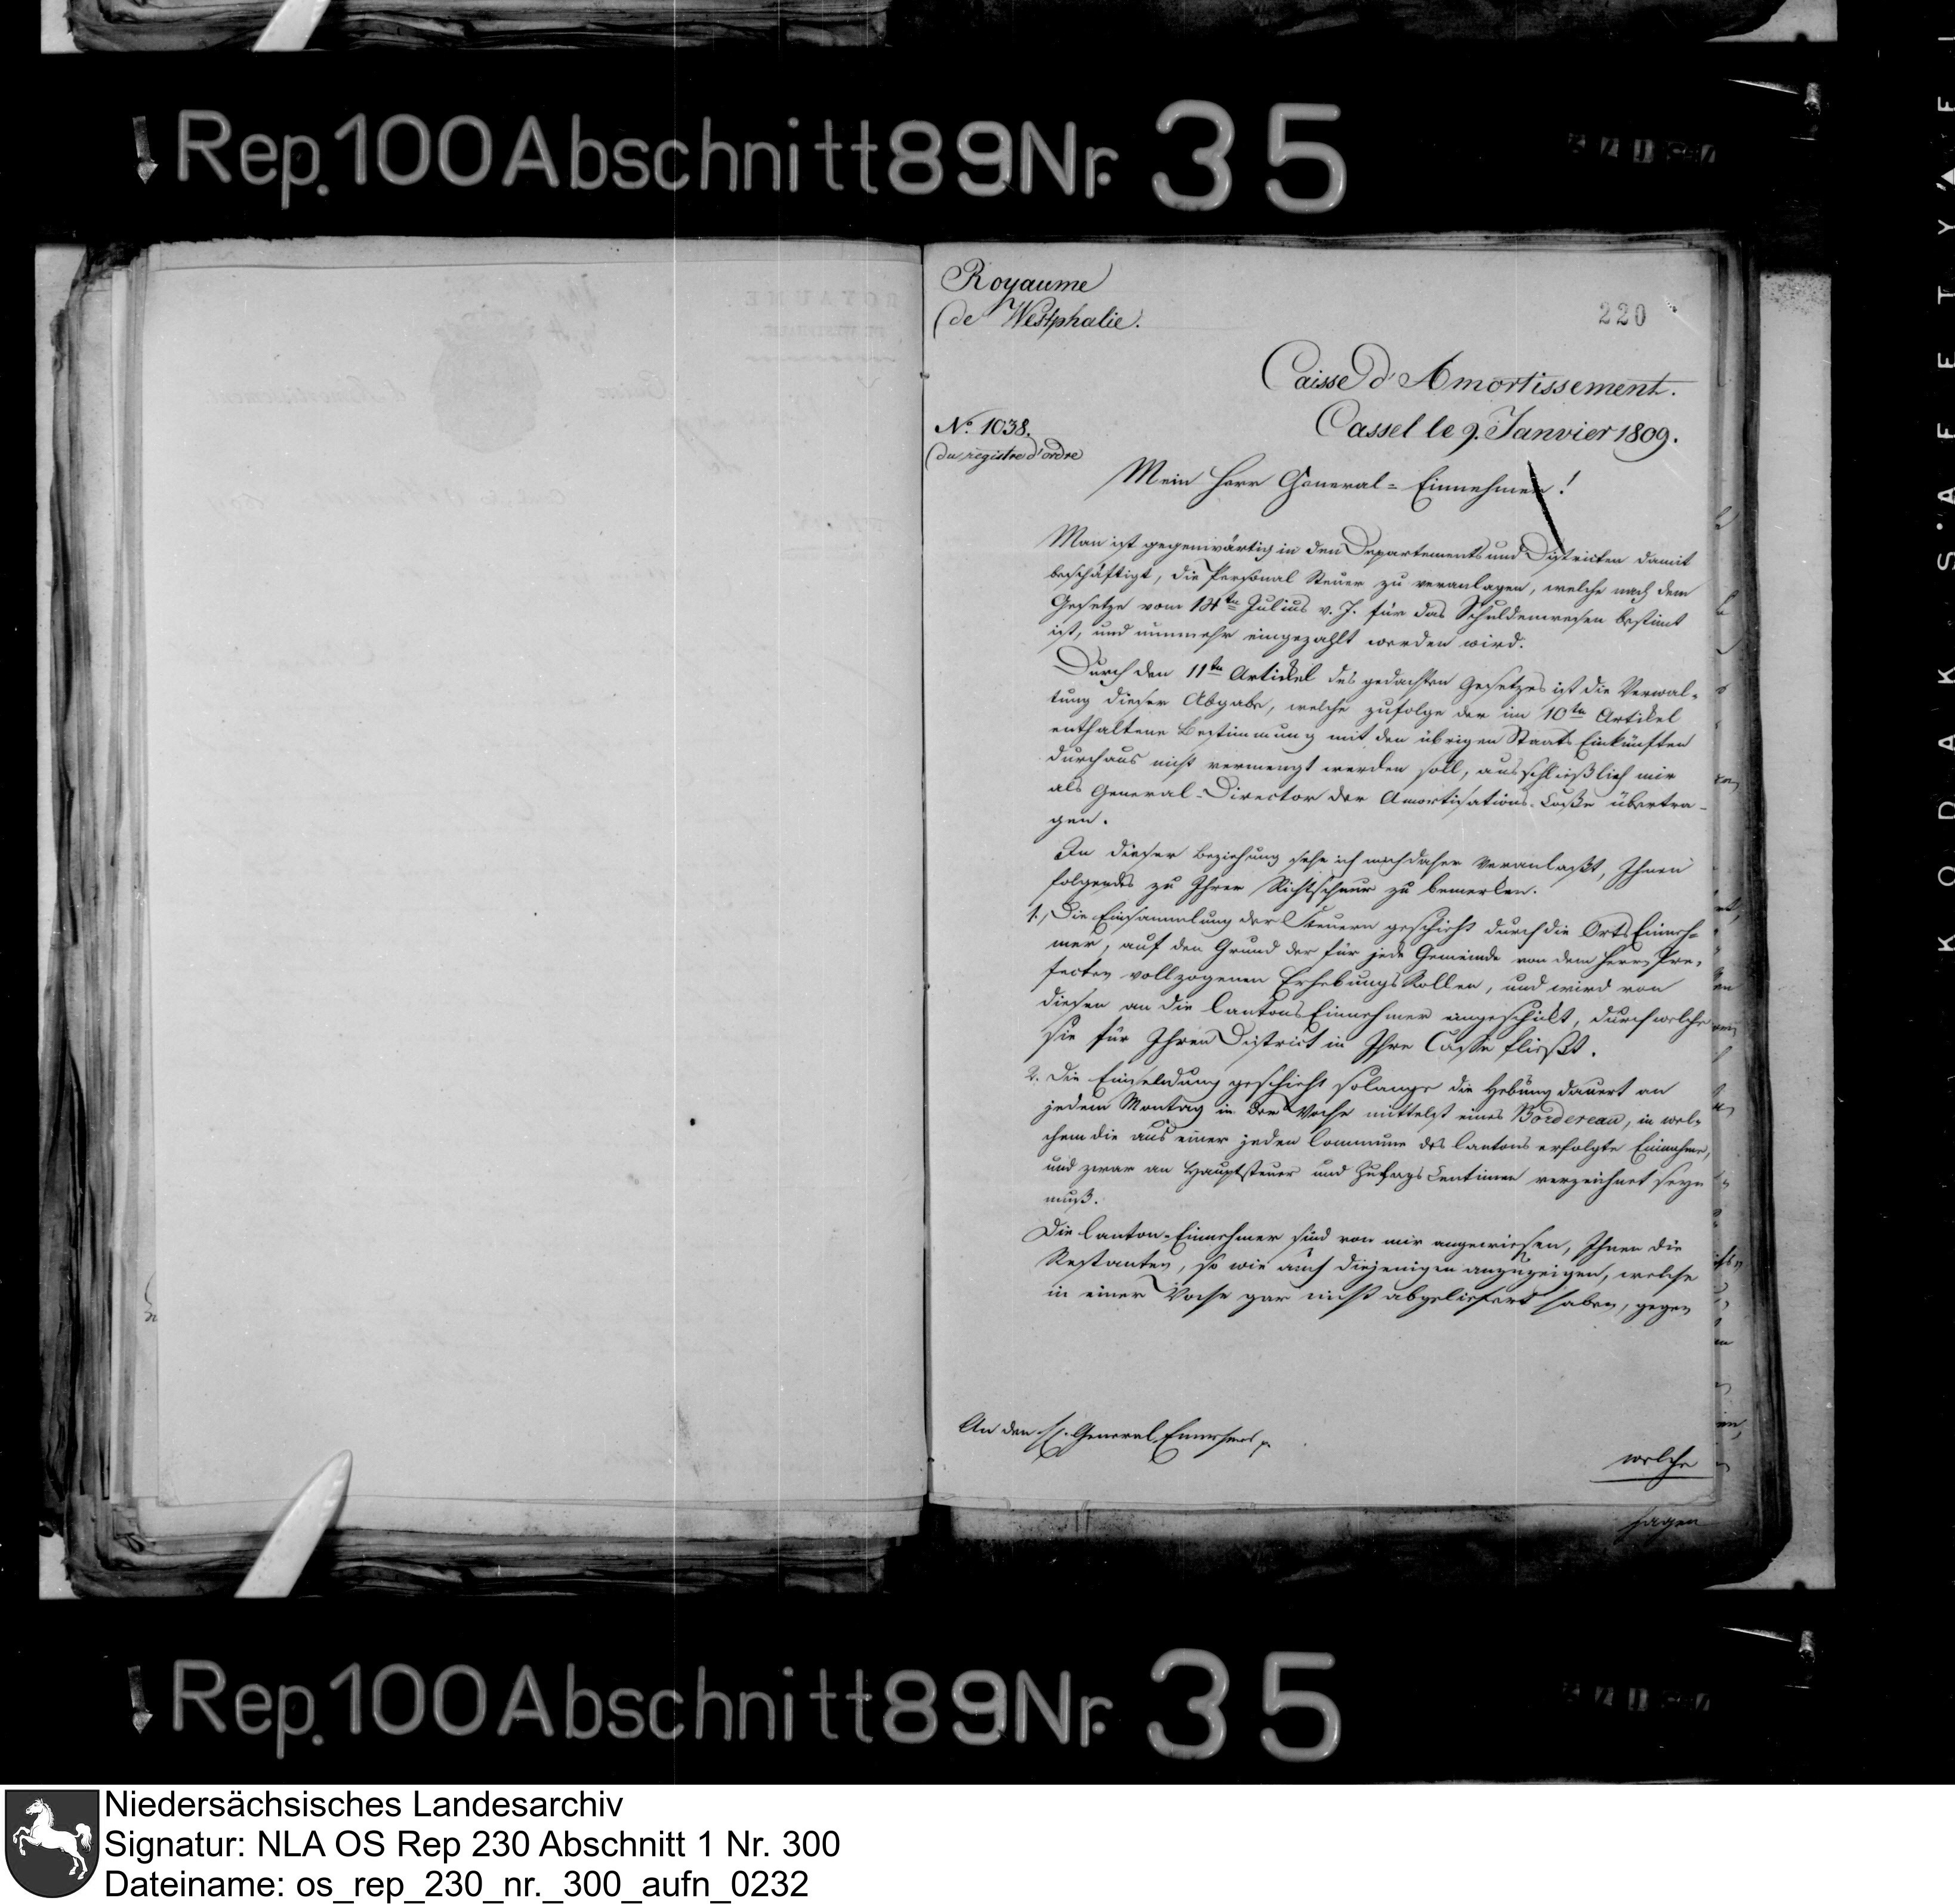 Rep. 100 Abschnitt 89 Nr. 35
Royaume
de Westphalie.
220
Caisse d'Amortissement.
Cassel le 9. Janvier 1809.
No. 1038.
du registre d'ordre
Mein Herr General-Einnehmer!
Man ist gegenwärtig in den Departements und Districten damit
beschäftigt, die Personal Steuer zu veranlagen, welche nach dem
Gesetze vom 14ten Julius v. J. für das Schuldenwesen bestimt
ist, und nunmehr eingezahlt werden wird.
Durch den 11ten Artickel des gedachten Gesetzes ist die Verwal-
tung dieser Abgabe, welche zufolge der im 10ten Artikel
enthaltene Bestimmung mit den übrigen Staats Einkünften
durchaus nicht vermengt werden soll, ausschließlich mir
als General-Director der Amortisations-Casse übertra-
gen.
In dieser Beziehung sehe ich mich daher veranlaßt, Ihnen
folgendes zu Ihrer Richtschnur zu bemerken.
1., Die Einsammlung der Steuern geschieht durch die Orts Einneh-
mer, auf den Grund der für jede Gemeinde von dem Herrn Prä-
fecten vollzogenen Erhebungs Rollen, und wird von
diesen an die Cantons Einnehmer eingeschickt, durch welche
sie für Ihren District in Ihre Casse fließt.
2. Die Einsendung geschieht solange die Hebung dauert an
jedem Montag in der Woche mittelst eines Bordereau, in wel-
chem die aus einer jeden Commune des Cantons erfolgte Einnahme,
und zwar an Hauptsteuer und Zusatz Centimen verzeichnet seyn
muß.
Die Canton-Einnehmer sind von mir angewiesen, Ihnen die
Restanten, so wie auch diejenigen anzuzeigen, welche
in einer Woche gar nicht abgeliefert haben, gegen
An den H. General Einnehmer
welche
Rep. 100 Abschnitt 89 Nr. 35
KODAK SAFETY
Niedersächsisches Landesarchiv
Signatur: NLA OS Rep 230 Abschnitt 1 Nr. 300
Dateiname: os_rep_230_nr._300_aufn_0232